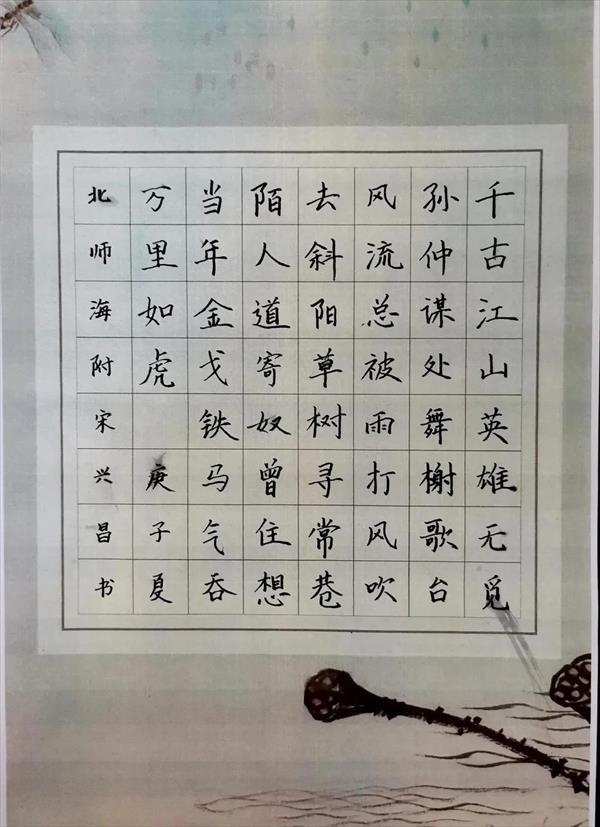 千古江山英雄无觅
孙仲谋处舞榭歌台
风流总被雨打风吹
去斜阳草树寻常巷
陌人道寄奴曾住想
当年金戈铁马气吞
万里如虎 庚子夏
北师海附宋兴昌书